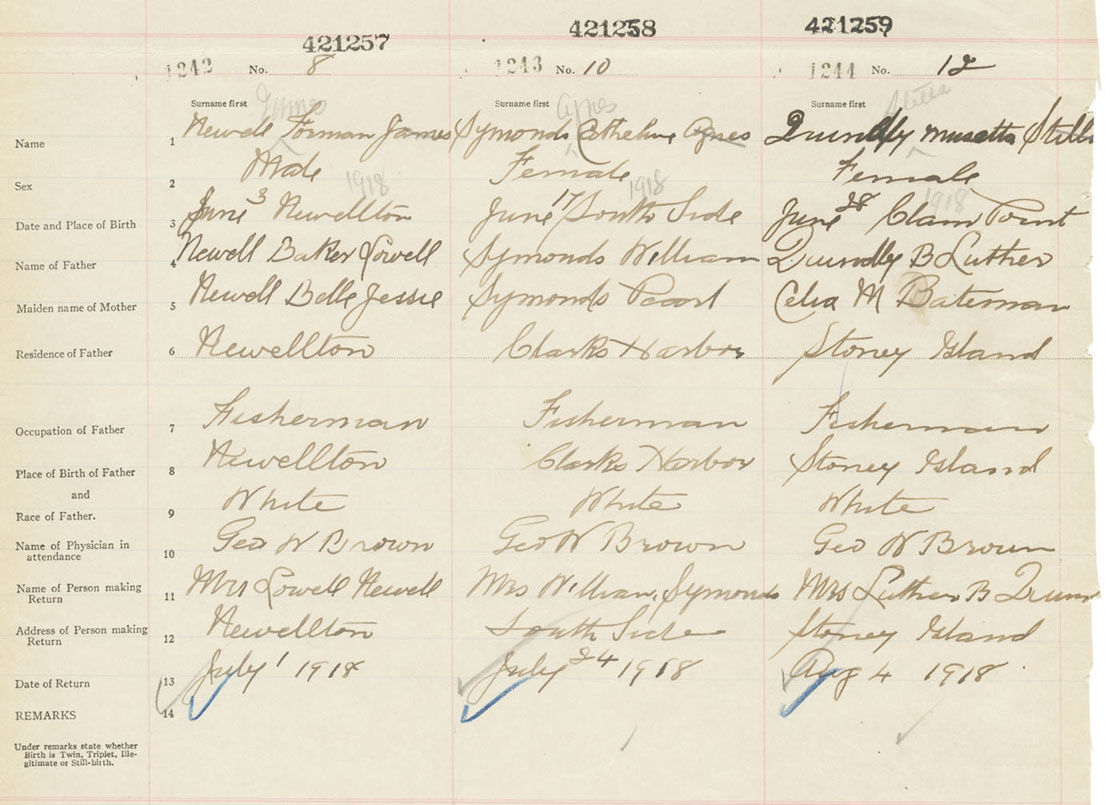 421257 421258 421259
1242 No. 8 1243 No. 10 1244 No. 12
James Agnes Stella
Surname first Surname first Surname first
Name 1 Newell Forman James Symonds Agnes Stella
Sex 2 Male Female Female
1918 1918 1918
Date and Place of Birth 3 June 3 Newellton June 17 South Side June 28 Clam Point
Name of Father 4 Newell Baker Lowell Symonds William B Luther
Maiden name of Mother 5 Newell Belle Jessie Symonds Pearl Celia M Bateman
Residence of Father 6 Newellton Clarks Harbor Stoney Island
Occupation of Father 7 Fisherman Fisherman Fisherman
Place of Birth of Father 8 Newellton Clarks Harbor Stoney Island
and
Race of Father. 9 White White White
Name of Physician in
attendance 10 Geo W Brown Geo W Brown Geo W Brown
Name of Person making
Return 11 Mrs Lowell Newell Mrs William Symonds Mrs Luther B
Address of Person making
Return 12 Newellton South Side Stoney Island
Date of Return 13 July 1 1918 July 24 1918 Aug 4 1918
REMARKS 14
Under remarks state whether
Birth is Twin, Triplet, Ille-
gitimate or Still-birth.